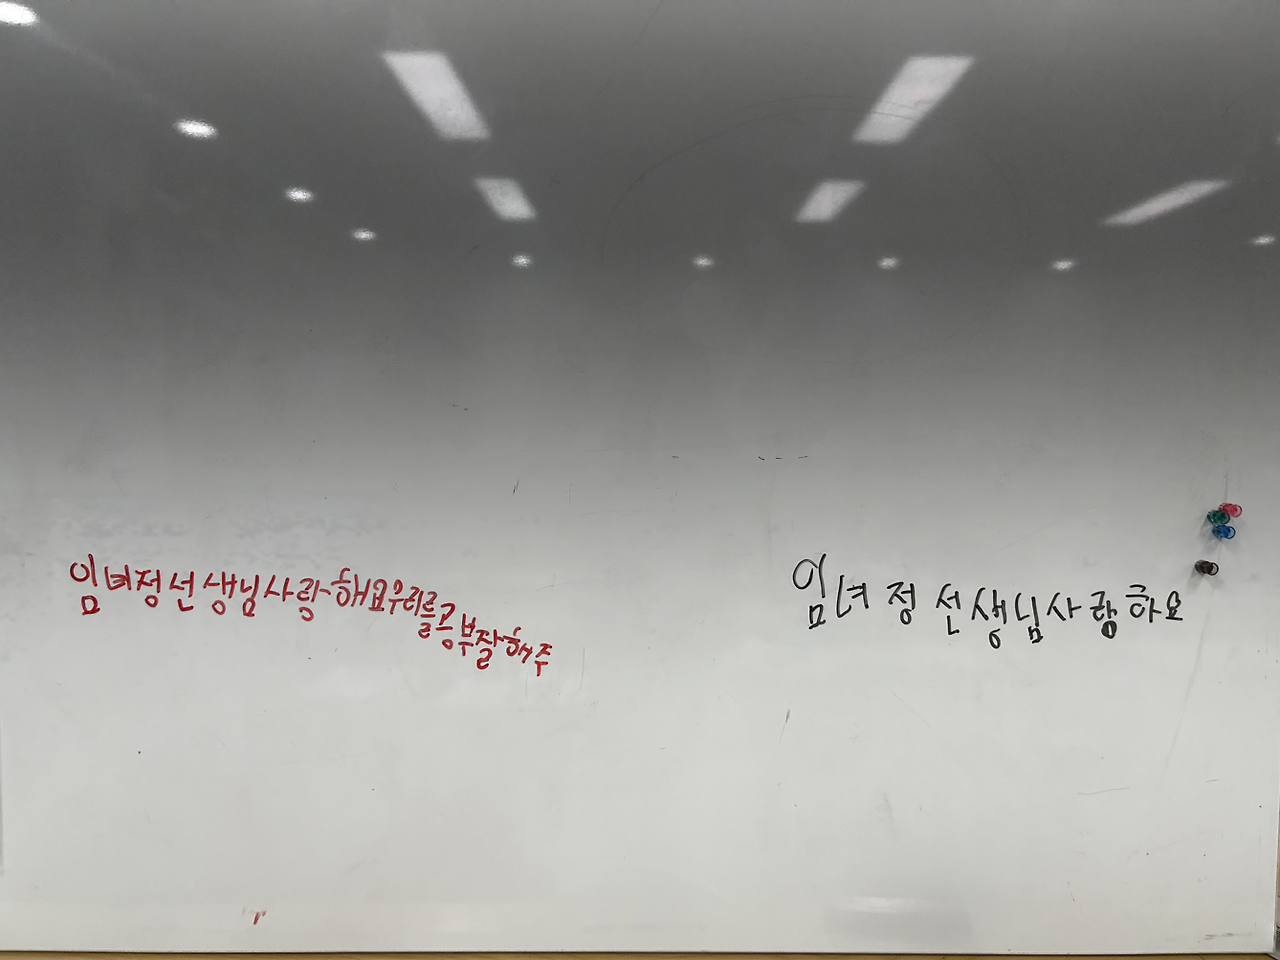 임녀정선생님사랑해요우리를공부잘해주
임녀정선생님사랑하요